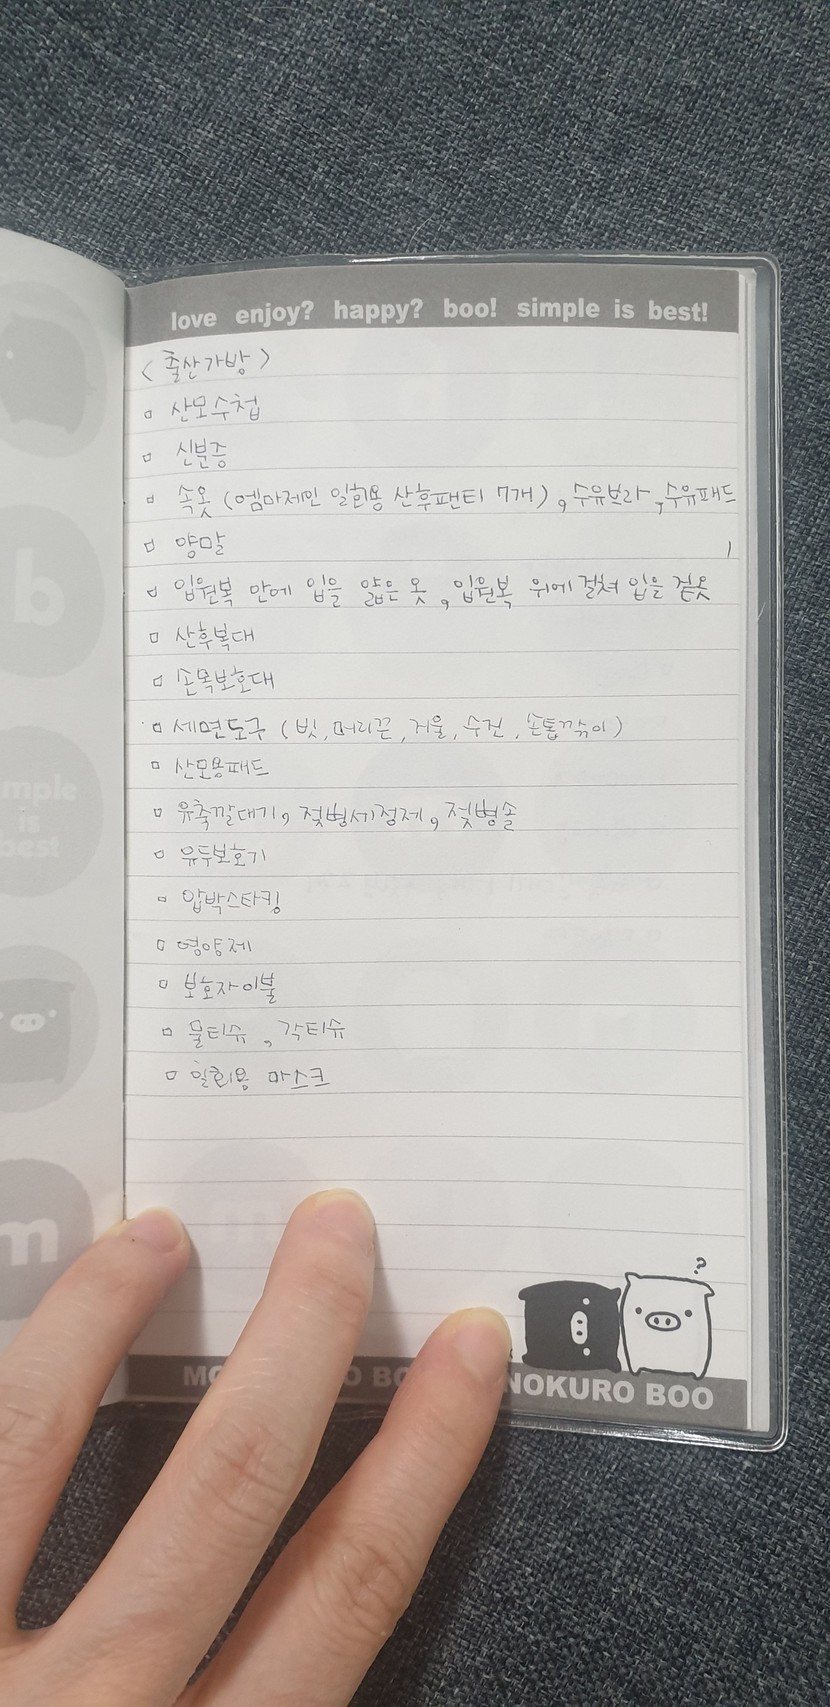 love enjoy? happy? boo! simple is best!
< 출산가방 >
▫ 산모수첩
▫ 신분증
▫ 속옷 (엠마제인 일회용 산후팬티 7개), 수유브라, 수유패드
▫ 양말
▫ 입원복 안에 입을 얇은 옷, 입원복 위에 걸쳐 입을 겉옷
▫ 산후복대
▫ 손목보호대
▫ 세면도구 (빗, 머리끈, 거울, 수건, 손톱깎이)
▫ 산모용패드
▫ 유축깔대기, 젖병세정제, 젖병솔
▫ 유두보호기
▫ 압박스타킹
▫ 영양제
▫ 보호자이불
▫ 물티슈, 각티슈
▫ 일회용 마스크
?
NOKURO BOO
b
mple
is
best
m